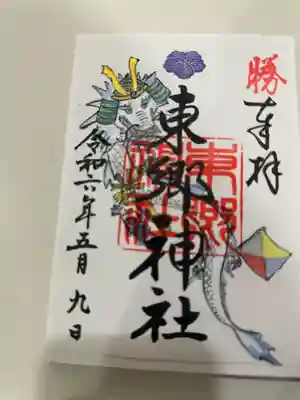 勝
奉拝
東郷神社
東郷神社
令和六年五月九日